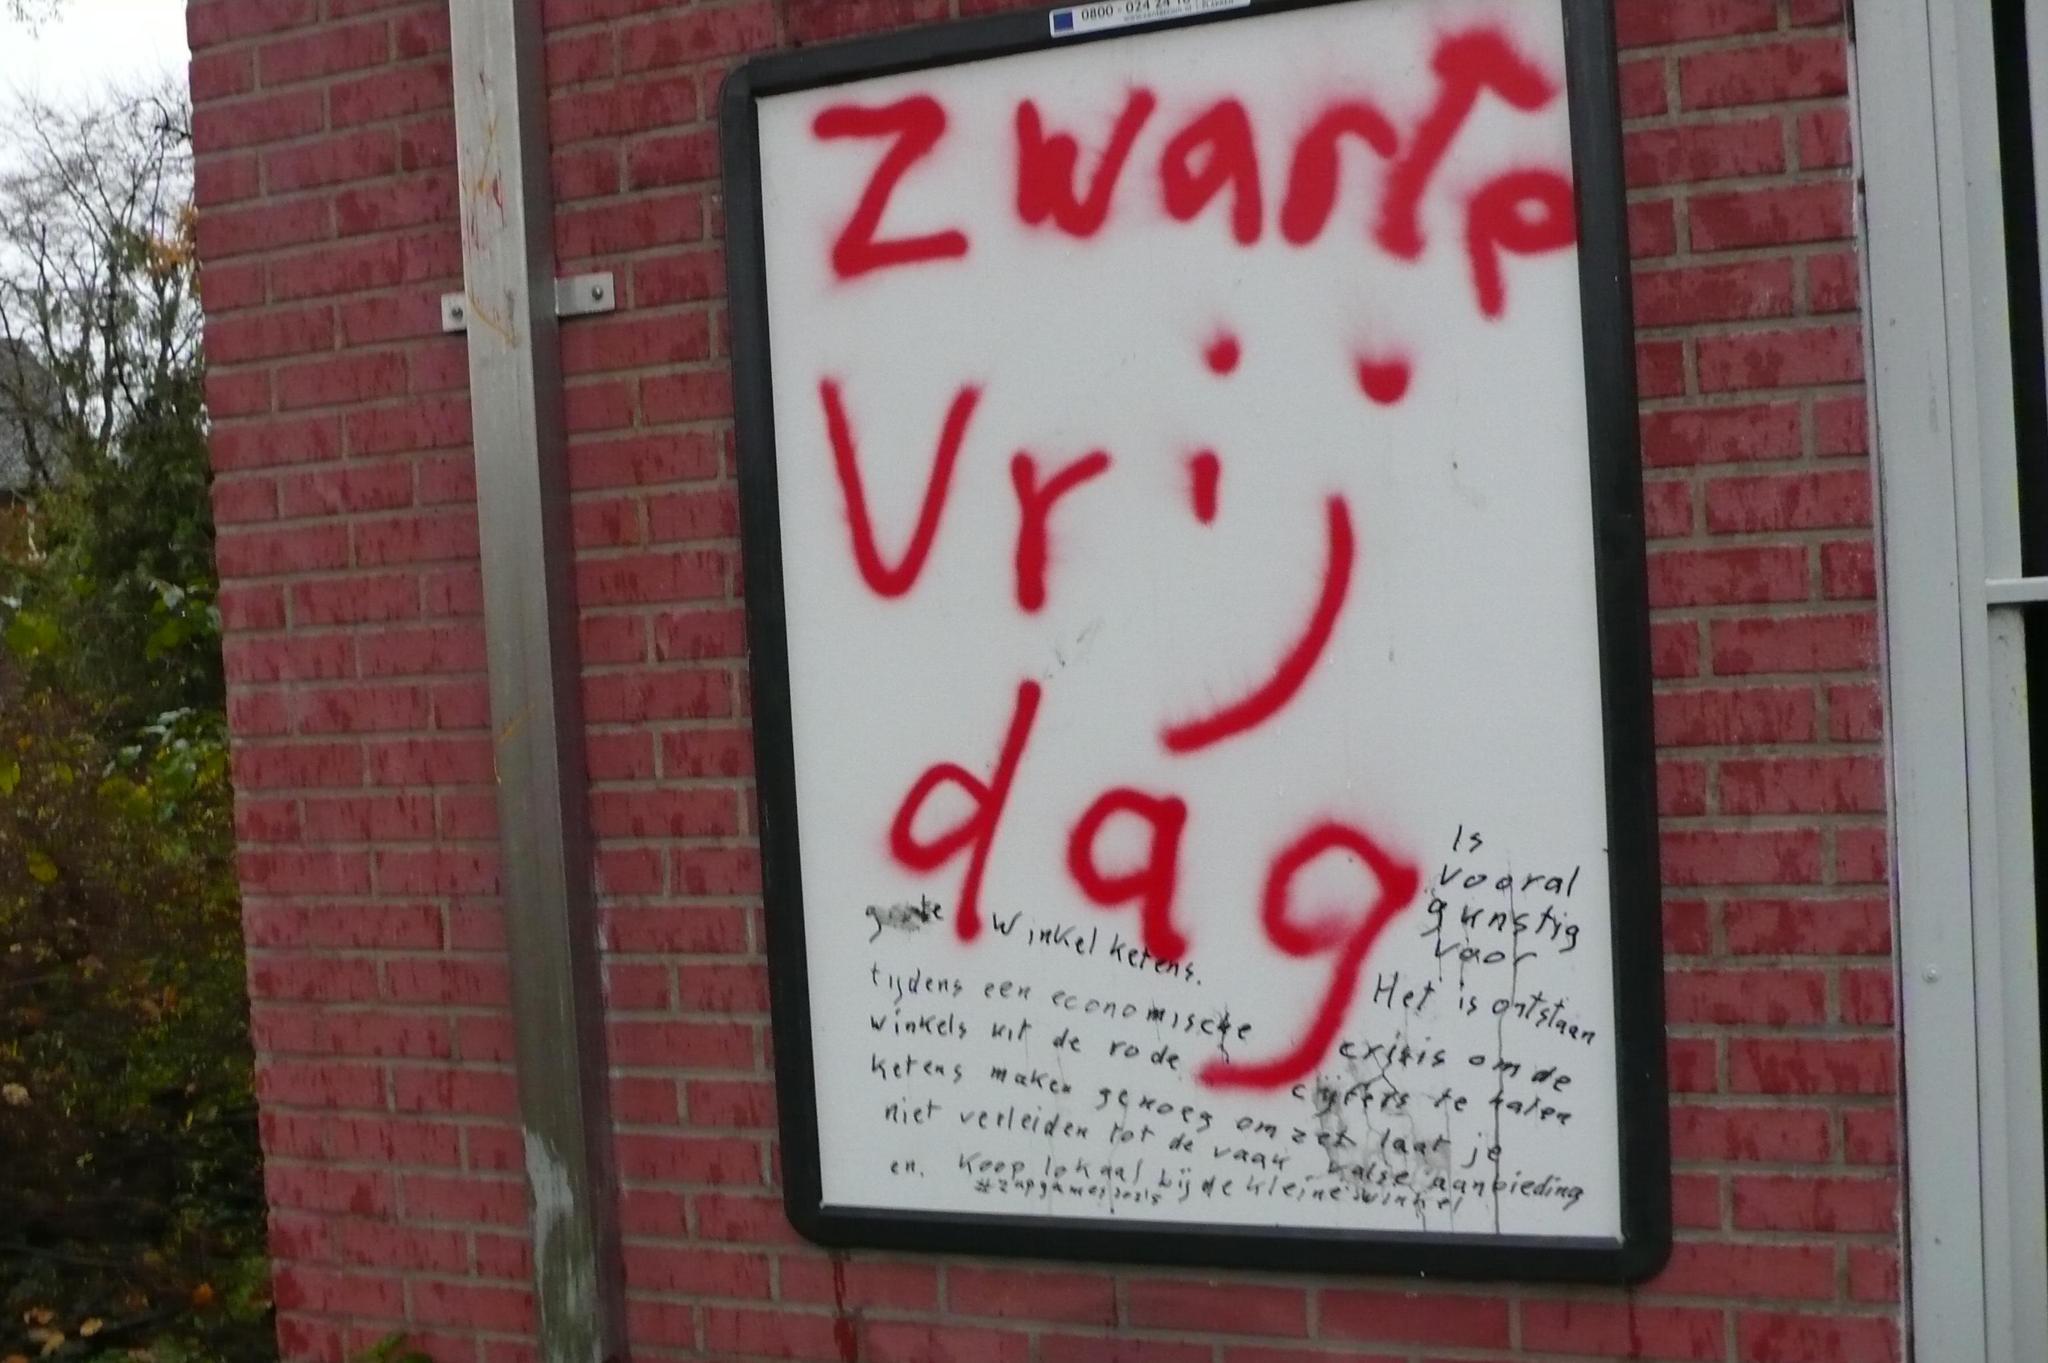 0800 - 024 24
Zwarte
Vrij
dag
Is
vooral
gunstig
voor
grote winkelketens. Het is ontstaan
tijdens een economische crisis om de
winkels uit de rode cijfers te halen
ketens maken genoeg omzet laat je
niet verleiden tot de vaak valse aanbieding
en. Koop lokaal bij de kleine winkel